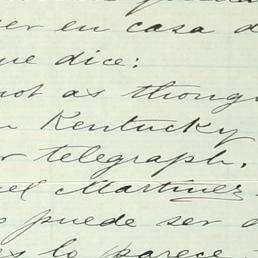 er en casa d
ue dice:
not as thoug
n Kentucky
r telegraph.
el Martinez.
o puede ser a
es lo parece